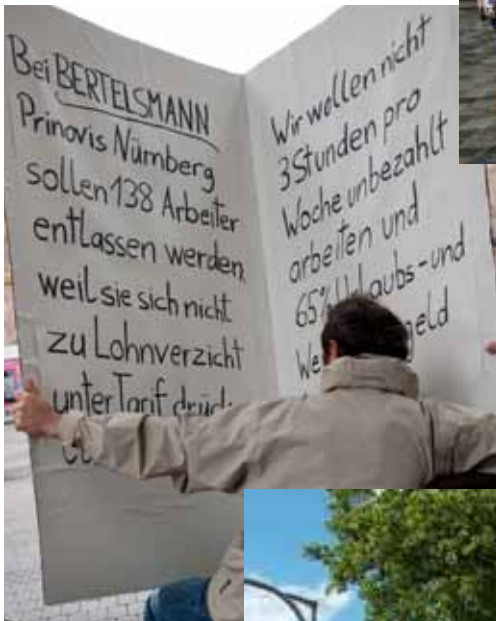 Bei BERTELSMANN
Prinovis Nürnberg
sollen 138 Arbeiter
entlassen werden,
weil sie sich nicht
zu Lohnverzicht
unter Tarif
Wir wollen nicht
3 Stunden pro
Woche unbezahlt
arbeiten und
65% -und